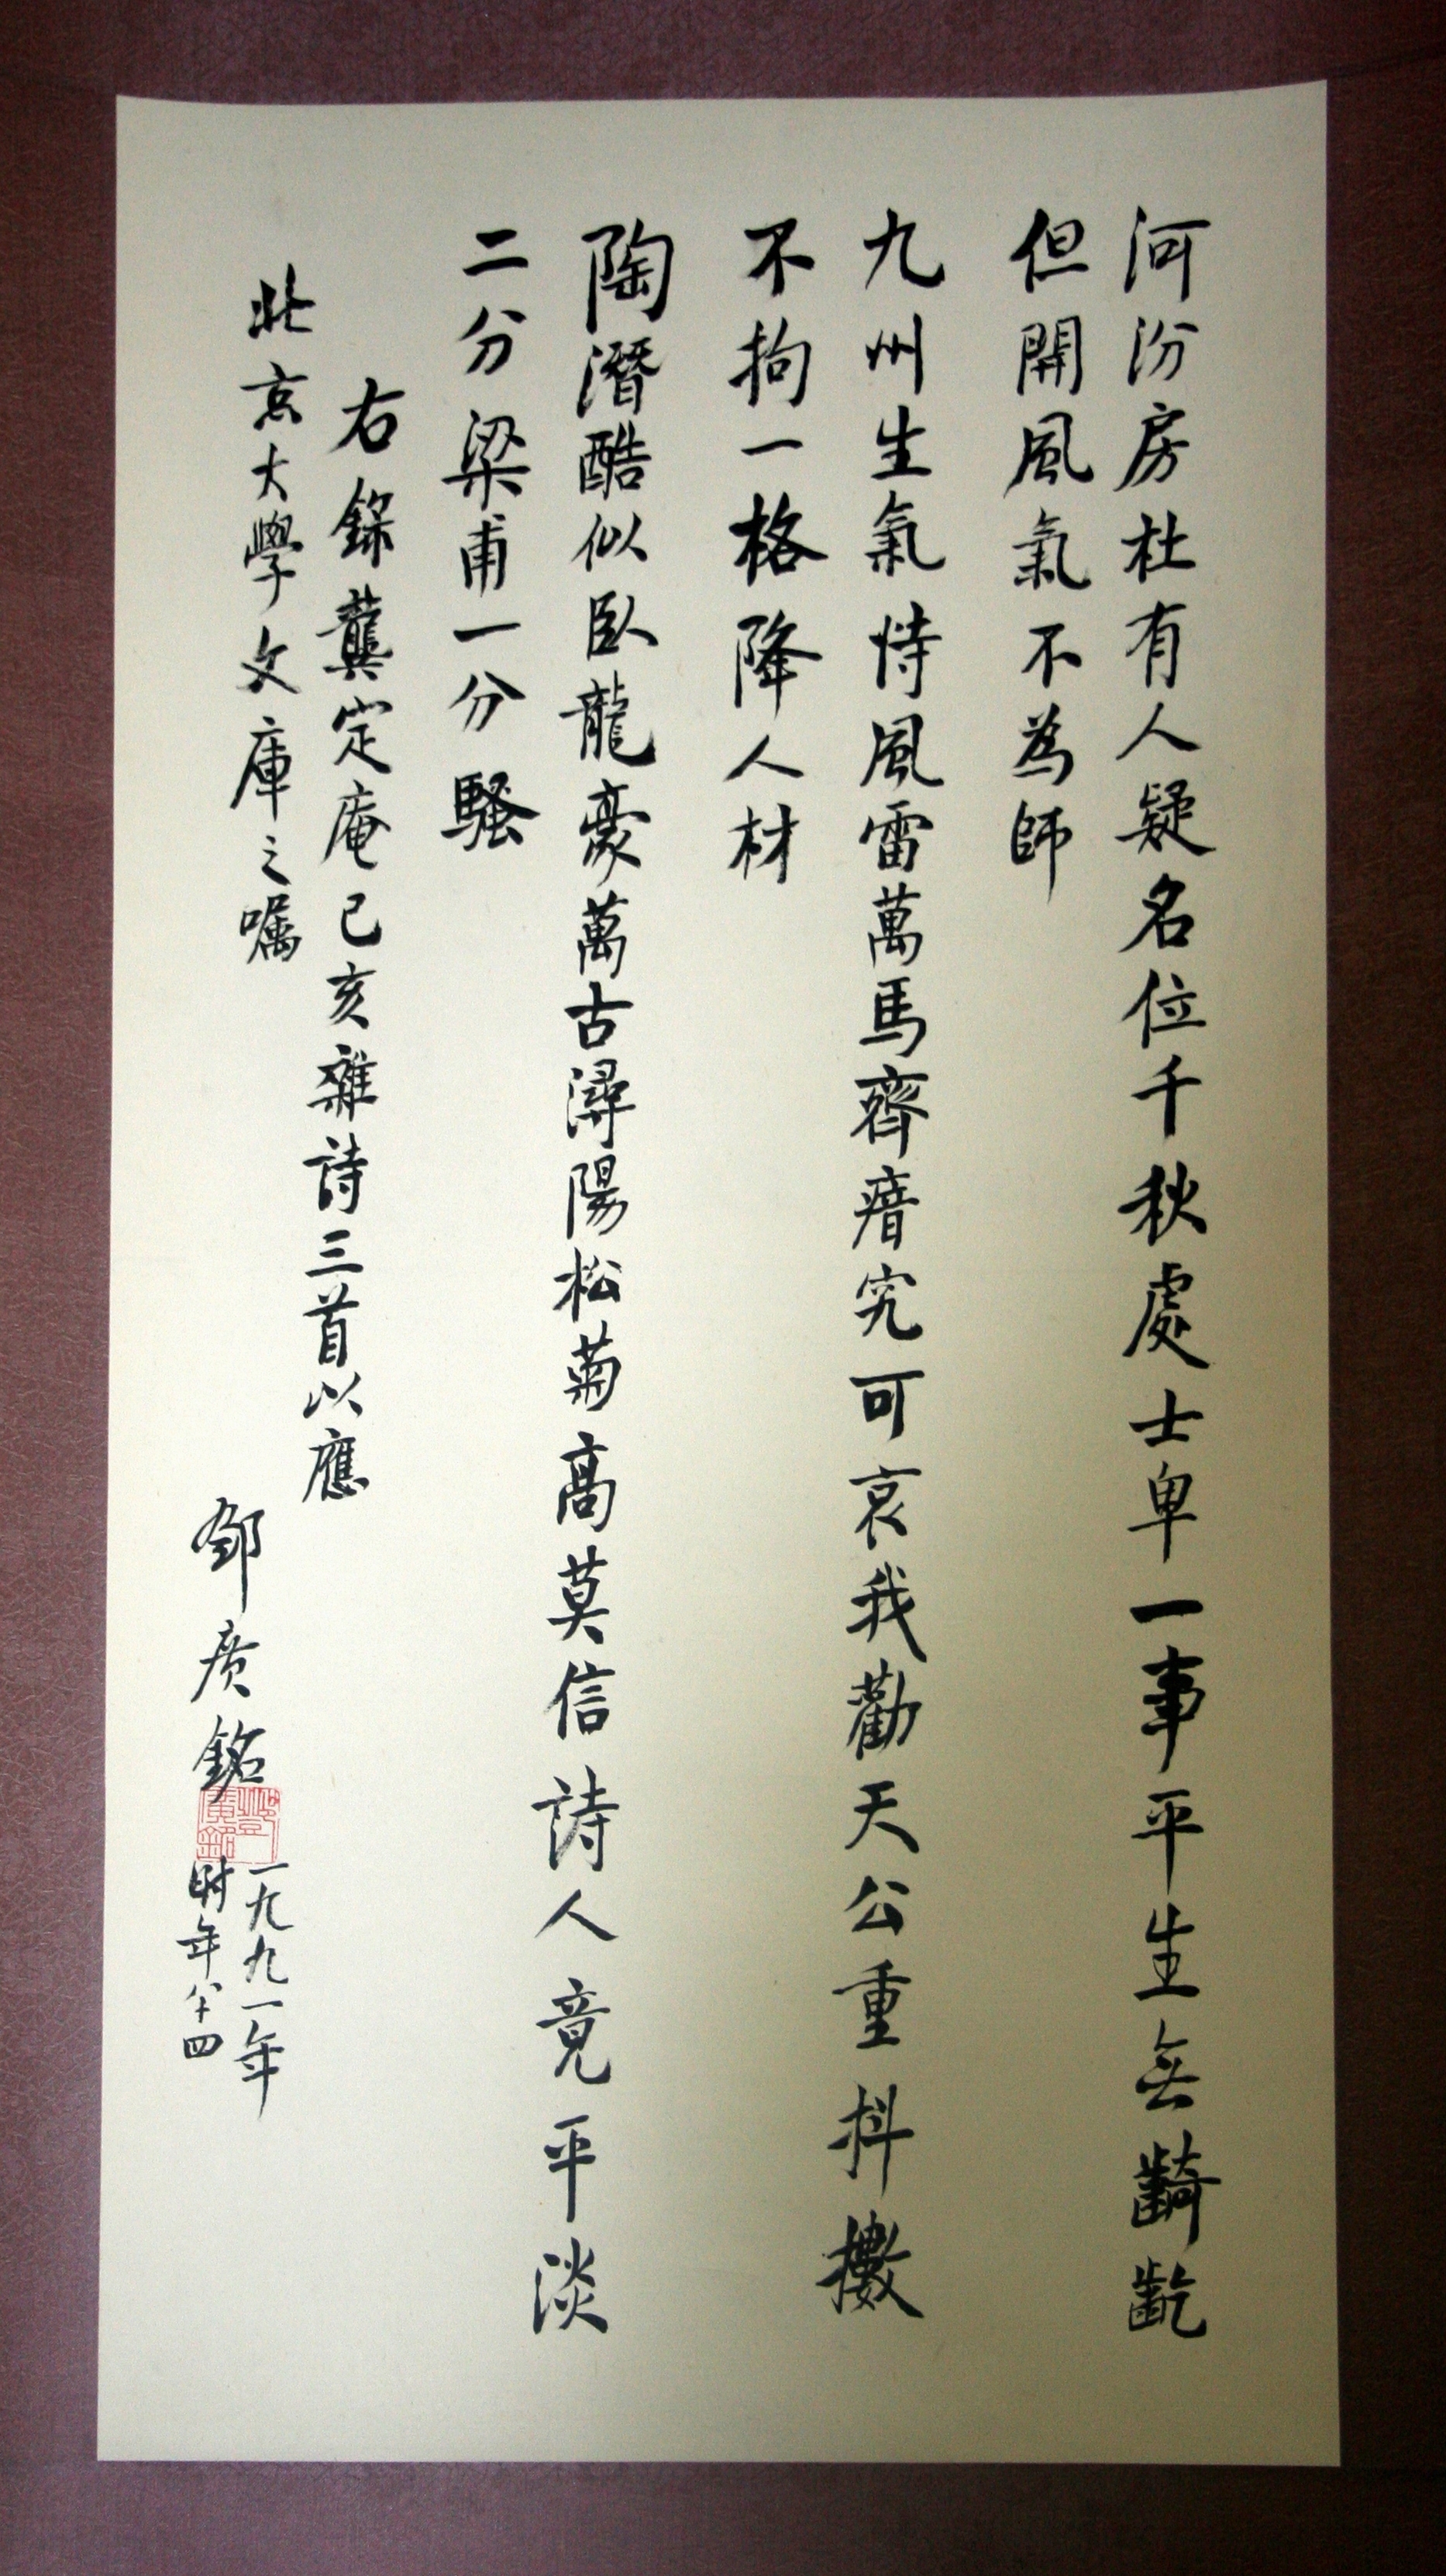 河汾房杜有人疑名位千秋處士卑一事平生無齮齕
但開風氣不為師
九州生氣恃風雷萬馬齊瘖究可哀我勸天公重抖擻
不拘一格降人材
陶潛酷似臥龍豪萬古潯陽松菊高莫信詩人竟平淡
二分梁甫一分騷
右錄龔定庵己亥雜詩三首以應
北京大學文庫之嘱
鄧廣銘
一九九一年
时年八十四